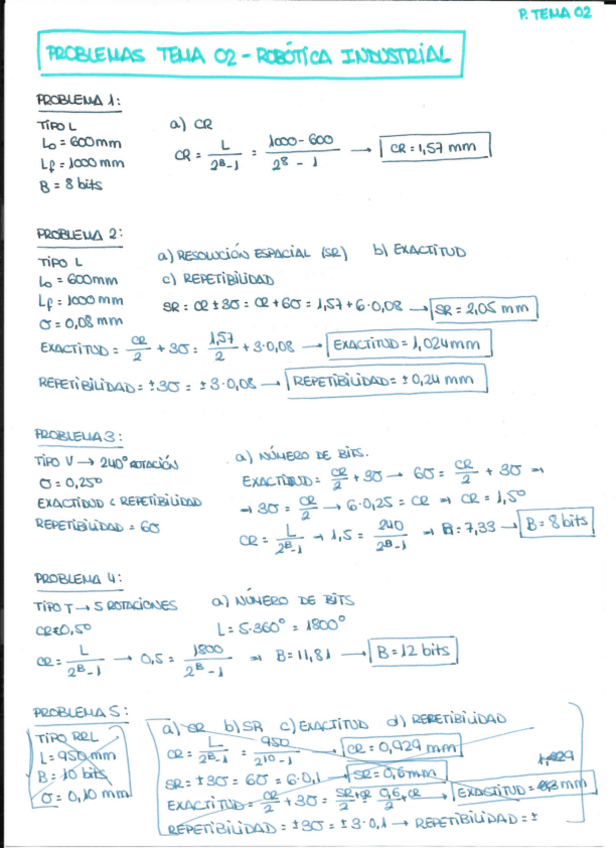 P. TEMA 02
PROBLEMAS TEMA 02 - ROBÓTICA INDUSTRIAL
PROBLEMA 1:
TIPO L
L₀ = 600mm
Lf = 1000 mm
B = 8 bits
a) CR
CR = L / 2^B-1 = 1000-600 / 2^8 - 1 → CR = 1,57 mm
PROBLEMA 2:
TIPO L
L₀ = 600mm
Lf = 1000 mm
σ = 0,08 mm
a) RESOLUCIÓN ESPACIAL (SR) b) EXACTITUD
c) REPETIBILIDAD
SR = CR ± 3σ = CR + 6σ = 1,57 + 6·0,08 → SR = 2,05 mm
EXACTITUD = CR/2 + 3σ = 1,57/2 + 3·0,08 → EXACTITUD = 1,024mm
REPETIBILIDAD = ±3σ = ±3·0,08 → REPETIBILIDAD = ±0,24 mm
PROBLEMA 3:
TIPO V → 240° ROTACIÓN
σ = 0,25°
EXACTITUD < REPETIBILIDAD
REPETIBILIDAD = 6σ
a) NÚMERO DE BITS.
EXACTITUD = CR/2 + 3σ → 6σ = CR/2 + 3σ ⇒
→ 3σ = CR/2 → 6·0,25 = CR ⇒ CR = 1,5°
CR = L / 2^B-1 → 1,5 = 240 / 2^B-1 ⇒ B = 7,33 → B = 8 bits
PROBLEMA 4:
TIPO T → 5 ROTACIONES
CR=0,5°
a) NÚMERO DE BITS
L = 5·360° = 1800°
CR = L / 2^B-1 → 0,5 = 1800 / 2^B-1 ⇒ B = 11,81 → B = 12 bits
PROBLEMA 5:
TIPO RRL
L = 950 mm
B = 10 bits
σ = 0,10 mm
a) CR b) SR c) EXACTITUD d) REPETIBILIDAD
CR = L / 2^B-1 = 950 / 2^10-1 → CR = 0,929 mm
SR = ±3σ = 6σ = 6·0,1 → SR = 0,6mm
EXACTITUD = CR/2 + 3σ = → EXACTITUD = mm
REPETIBILIDAD = ±3σ = ±3·0,1 → REPETIBILIDAD = ±